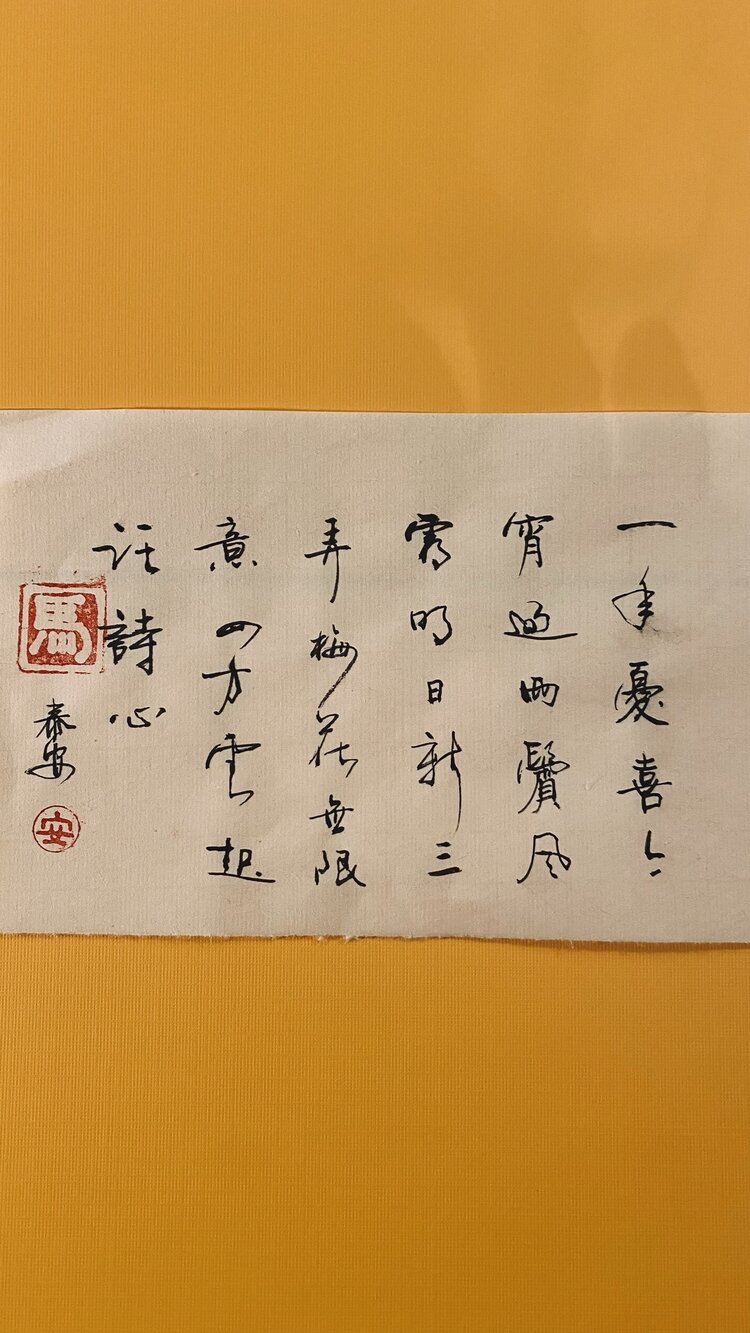 一年憂喜今
宵過兩鬢風
霜明日新三
弄梅花無限
意四方雲起
話詩心
馬
泰安
安